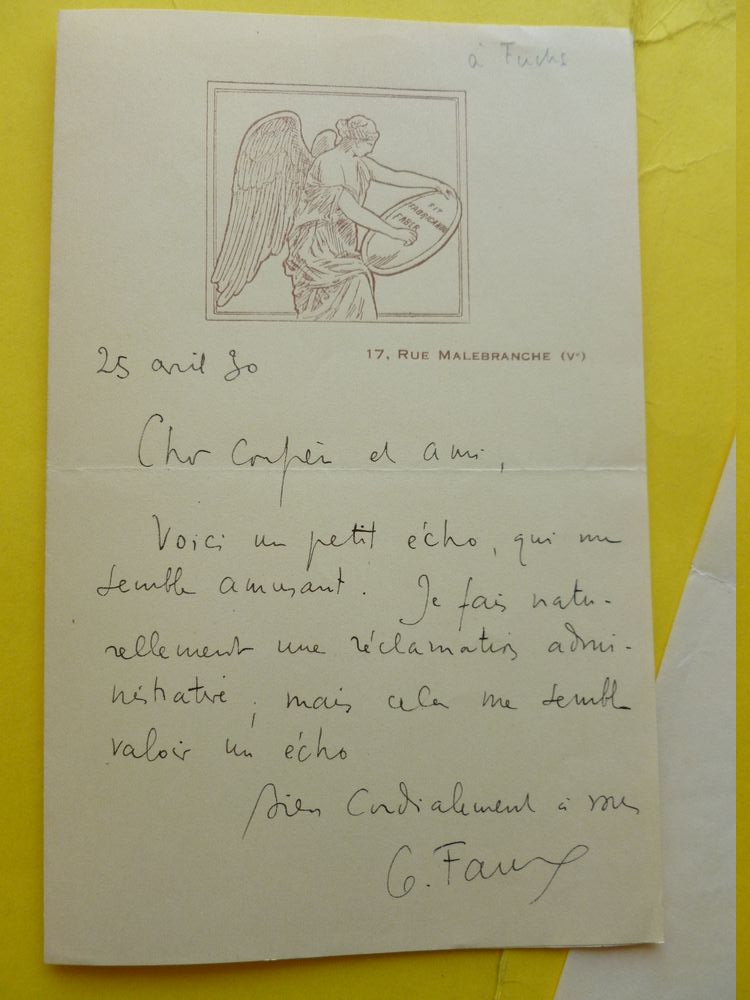 à Fuchs
FIT
FABRICANDO
FABER
17, RUE MALEBRANCHE (Vᵉ)
25 avril 30
Cher Confrère et ami,
Voici un petit écho, qui me
semble amusant. Je fais natu-
rellement une réclamation admi-
nistrative ; mais cela me semble
valoir un écho
Bien Cordialement à vous
G.